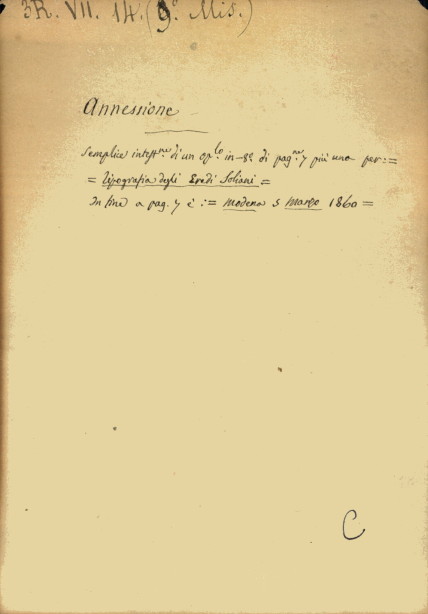 3R. VII. 14. (9.º Mis.)
Annessione
Semplice intestne. di un oplo. in-8º. di pagne. 7 più una per :=
= Tipografia degli Eredi Soliani =
In fine a pag. 7 è := Modena 5 Marzo 1860 =
C